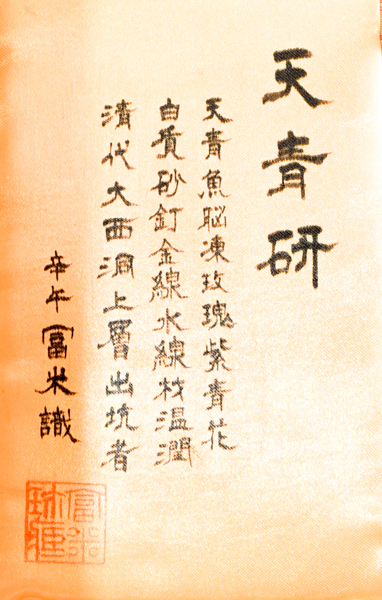 天青研
天青魚脳凍玫瑰紫青花
白质砂釘金線水線材温潤
清代大西洞上層出坑者
辛午冨米識
冨米